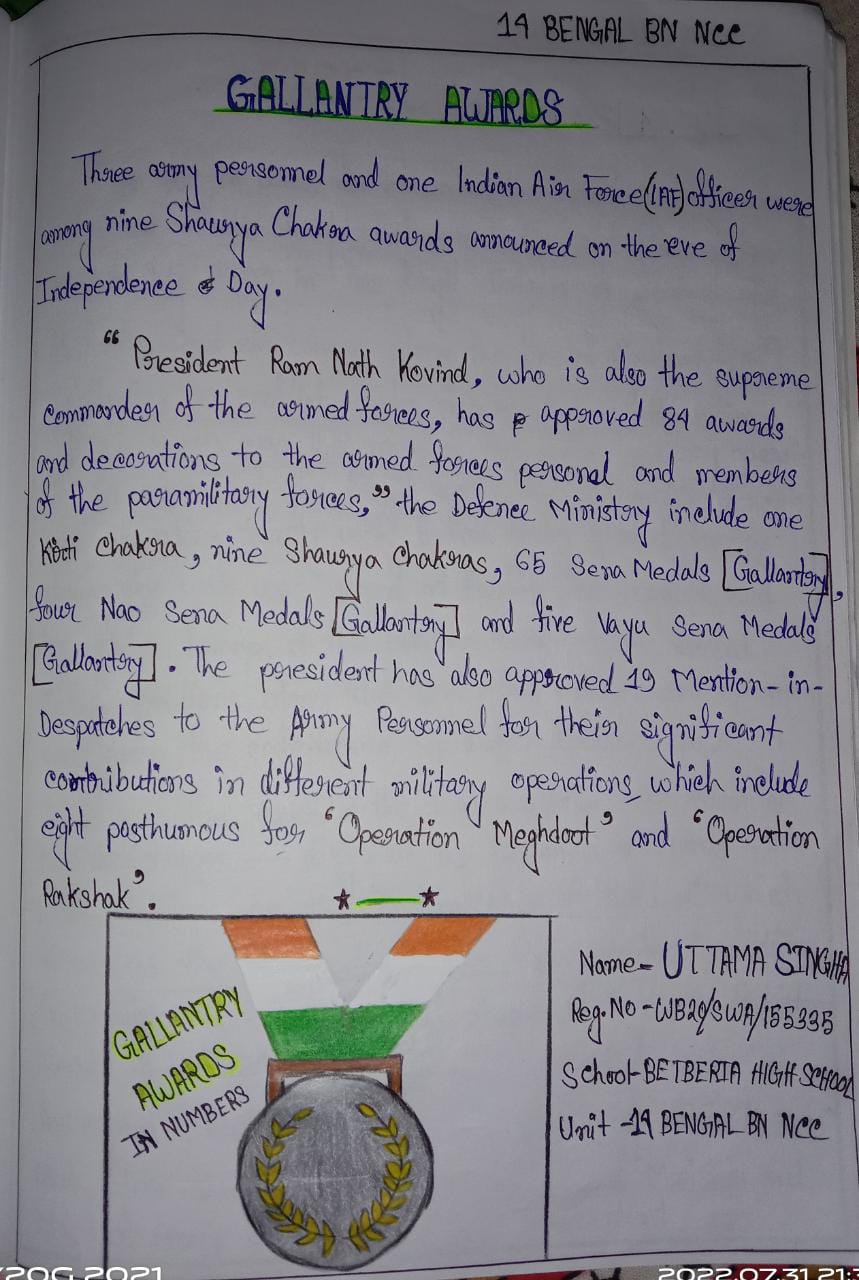 14 BENGAL BN NCC
GALLANTRY AWARDS
Three army personnel and one Indian Air Force(IAF)officer were
among nine Shaurya Chakra awards announced on the eve of
Independence Day.
"President Ram Nath Kovind, who is also the supreme
commander of the armed forces, has approved 84 awards
and decorations to the armed forces personal and members
of the paramilitary forces," the Defence Ministry include one
Kirti Chakra, nine Shaurya Chakras, 65 Sena Medals [Gallantry],
four Nao Sena Medals [Gallantry] and five Vayu Sena Medals
[Gallantry]. The president has also approved 19 Mention-in-
Despatches to the Army Personnel for their significant
contributions in different military operations, which include
eight posthumous for 'Operation Meghdoot' and 'Operation
Rakshak'.
GALLANTRY
AWARDS
IN NUMBERS
Name- UTTAMA SINGHA
Reg.No -WB20/SWA/155335
School-BETBERIA HIGH SCHOOL
Unit -14 BENGAL BN NCC
2021
2022.07.31 21: